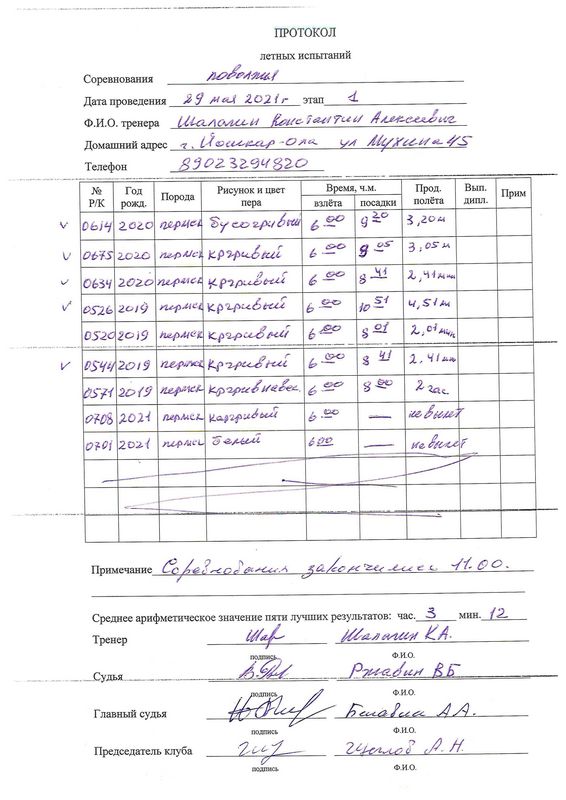 ПРОТОКОЛ
летных испытаний
Соревнования поволжия
Дата проведения 29 мая 2021г этап 1
Ф.И.О. тренера Шалагин Константин Алексеевич
Домашний адрес г. Йошкар-Ола ул Мухина 45
Телефон 89023294820
№ Р/К Год рожд. Порода Рисунок и цвет пера Время, ч.м. взлёта посадки Прод. полёта Вып. дипл. Прим
0614 2020 пермск бусогривый 6 00 9 20 3,20м
0675 2020 пермск кргривый 6 00 9 05 3,05м
0634 2020 пермск кргривый 6 00 8 41 2,41мин
0526 2019 пермск кргривый 6 00 10 51 4,51м
0520 2019 пермск кргривый 6 00 8 01 2,01мин
0544 2019 пермск кргривый 6 00 8 41 2,41мин
0571 2019 пермск 6 00 8 00 2 час
0708 2021 пермск каргривый 6 00 — невылет
0701 2021 пермск белый 6 00 — невылет
Примечание Соревнования закончились 11.00.
Среднее арифметическое значение пяти лучших результатов: час. 3 мин. 12
Тренер Шалагин К.А.
подпись Ф.И.О.
Судья Ржавин В Б
подпись Ф.И.О.
Главный судья А.А.
подпись Ф.И.О.
Председатель клуба Щеглов А.Н.
подпись Ф.И.О.